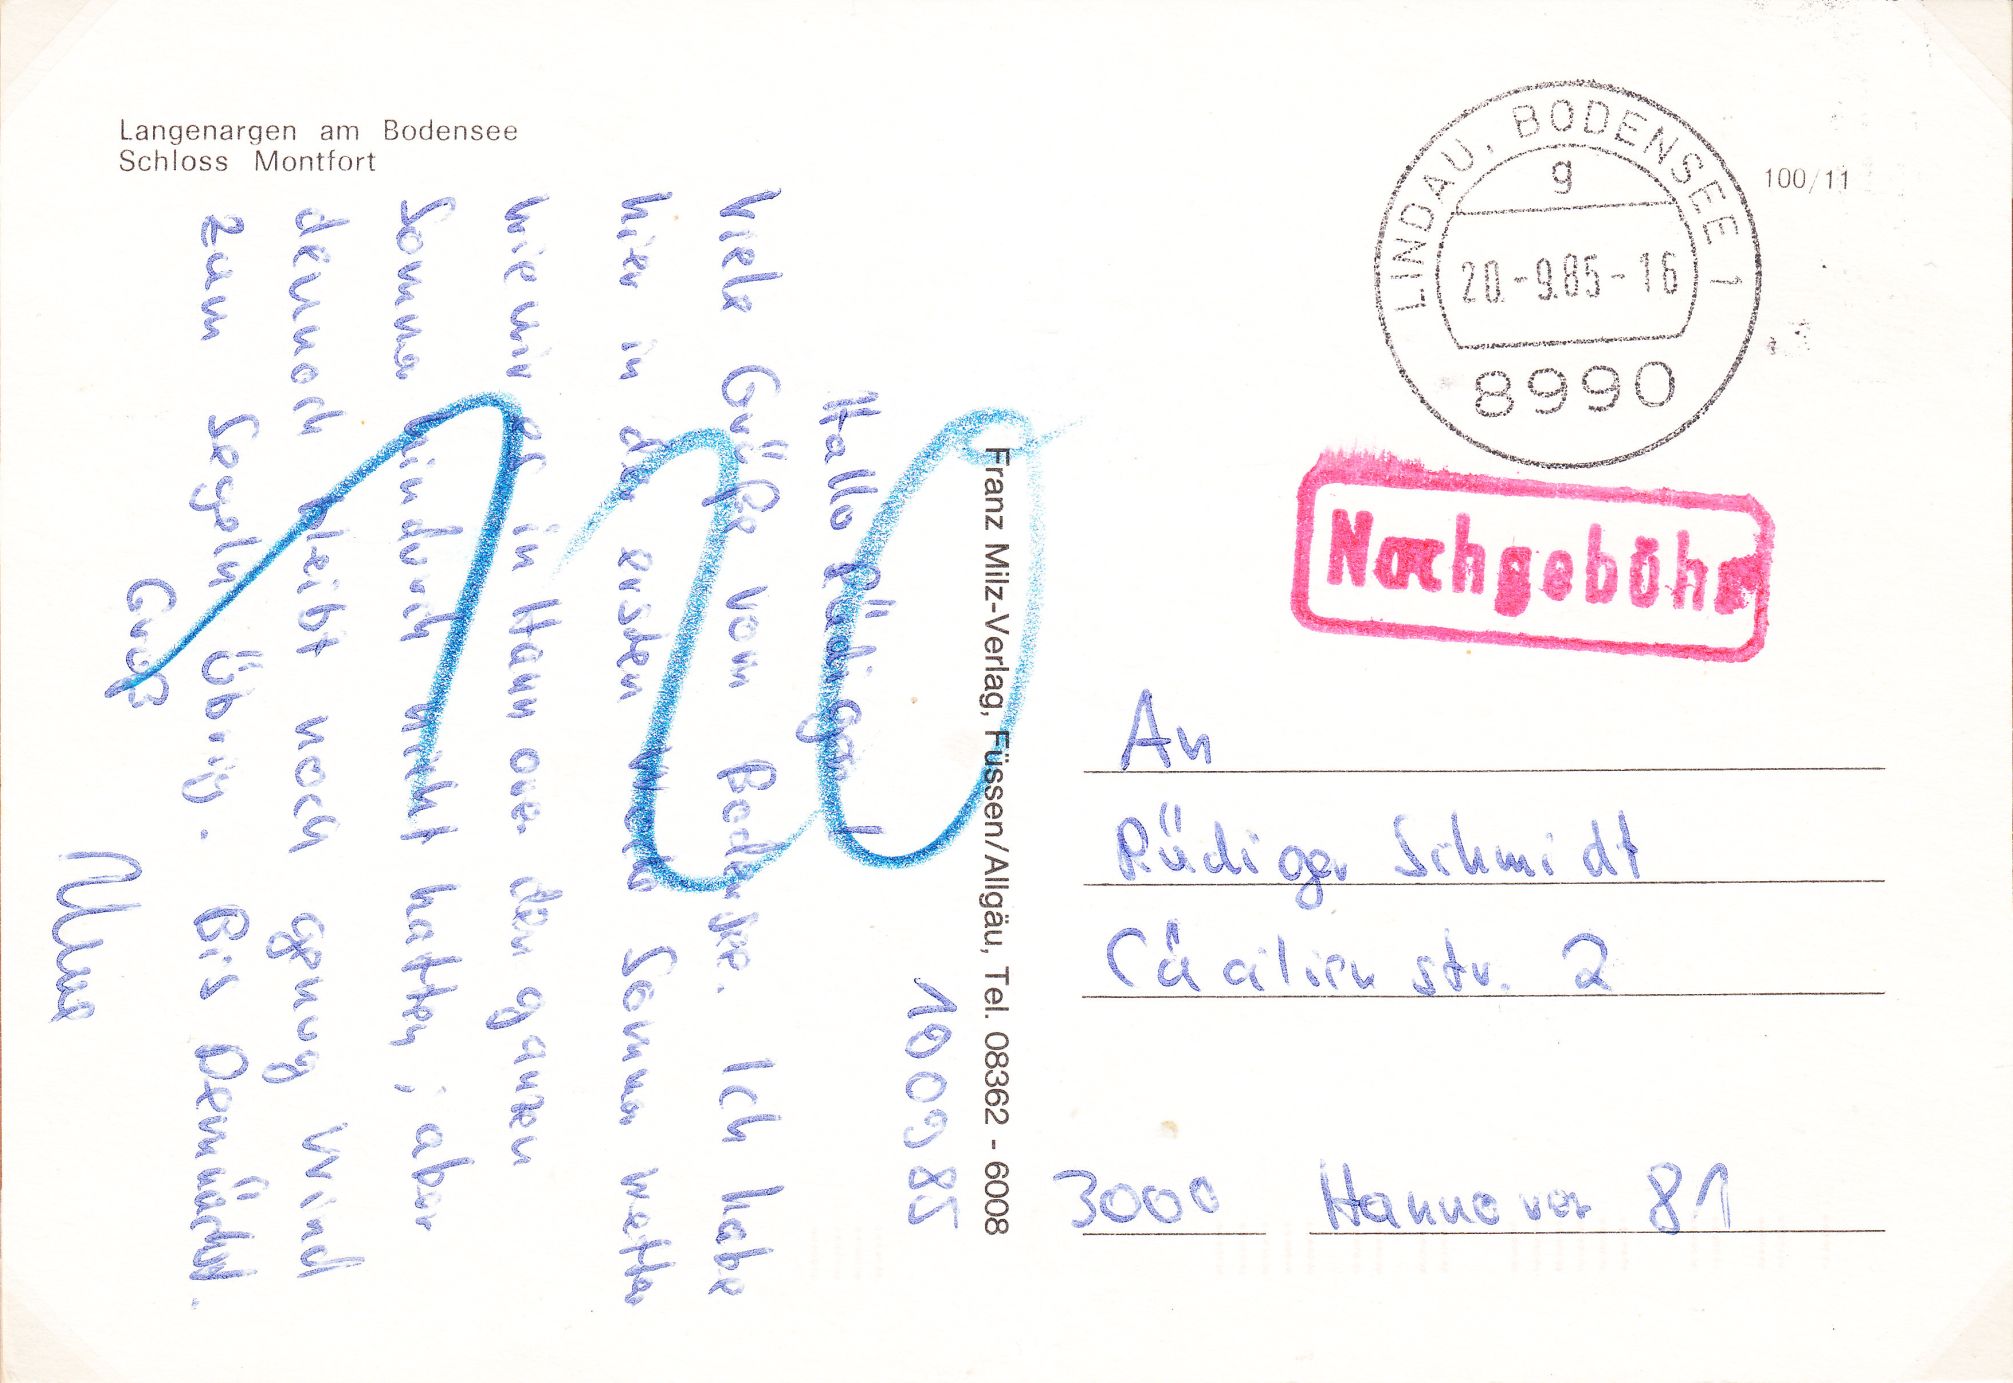 Langenargen am Bodensee
Schloss Montfort
100/11
LINDAU, BODENSEE 1
g
20.-9.85-16
8990
Nachgebühr
120
Franz Milz-Verlag, Füssen/Allgäu, Tel. 08362 - 6008
100985
Hallo Rüdiger!
Viele Grüße vom Bodensee. Ich habe
hier in der ersten Woche Sonnenwetter
wie wir es in Hannover den ganzen
Sommer hindurch nicht hatten, aber
dennoch bleibt noch genug Wind
zum Segeln übrig. Bis Demnächst.
Gruß
An
Rüdiger Schmidt
Cäcilienstr. 2
3000 Hannover 81